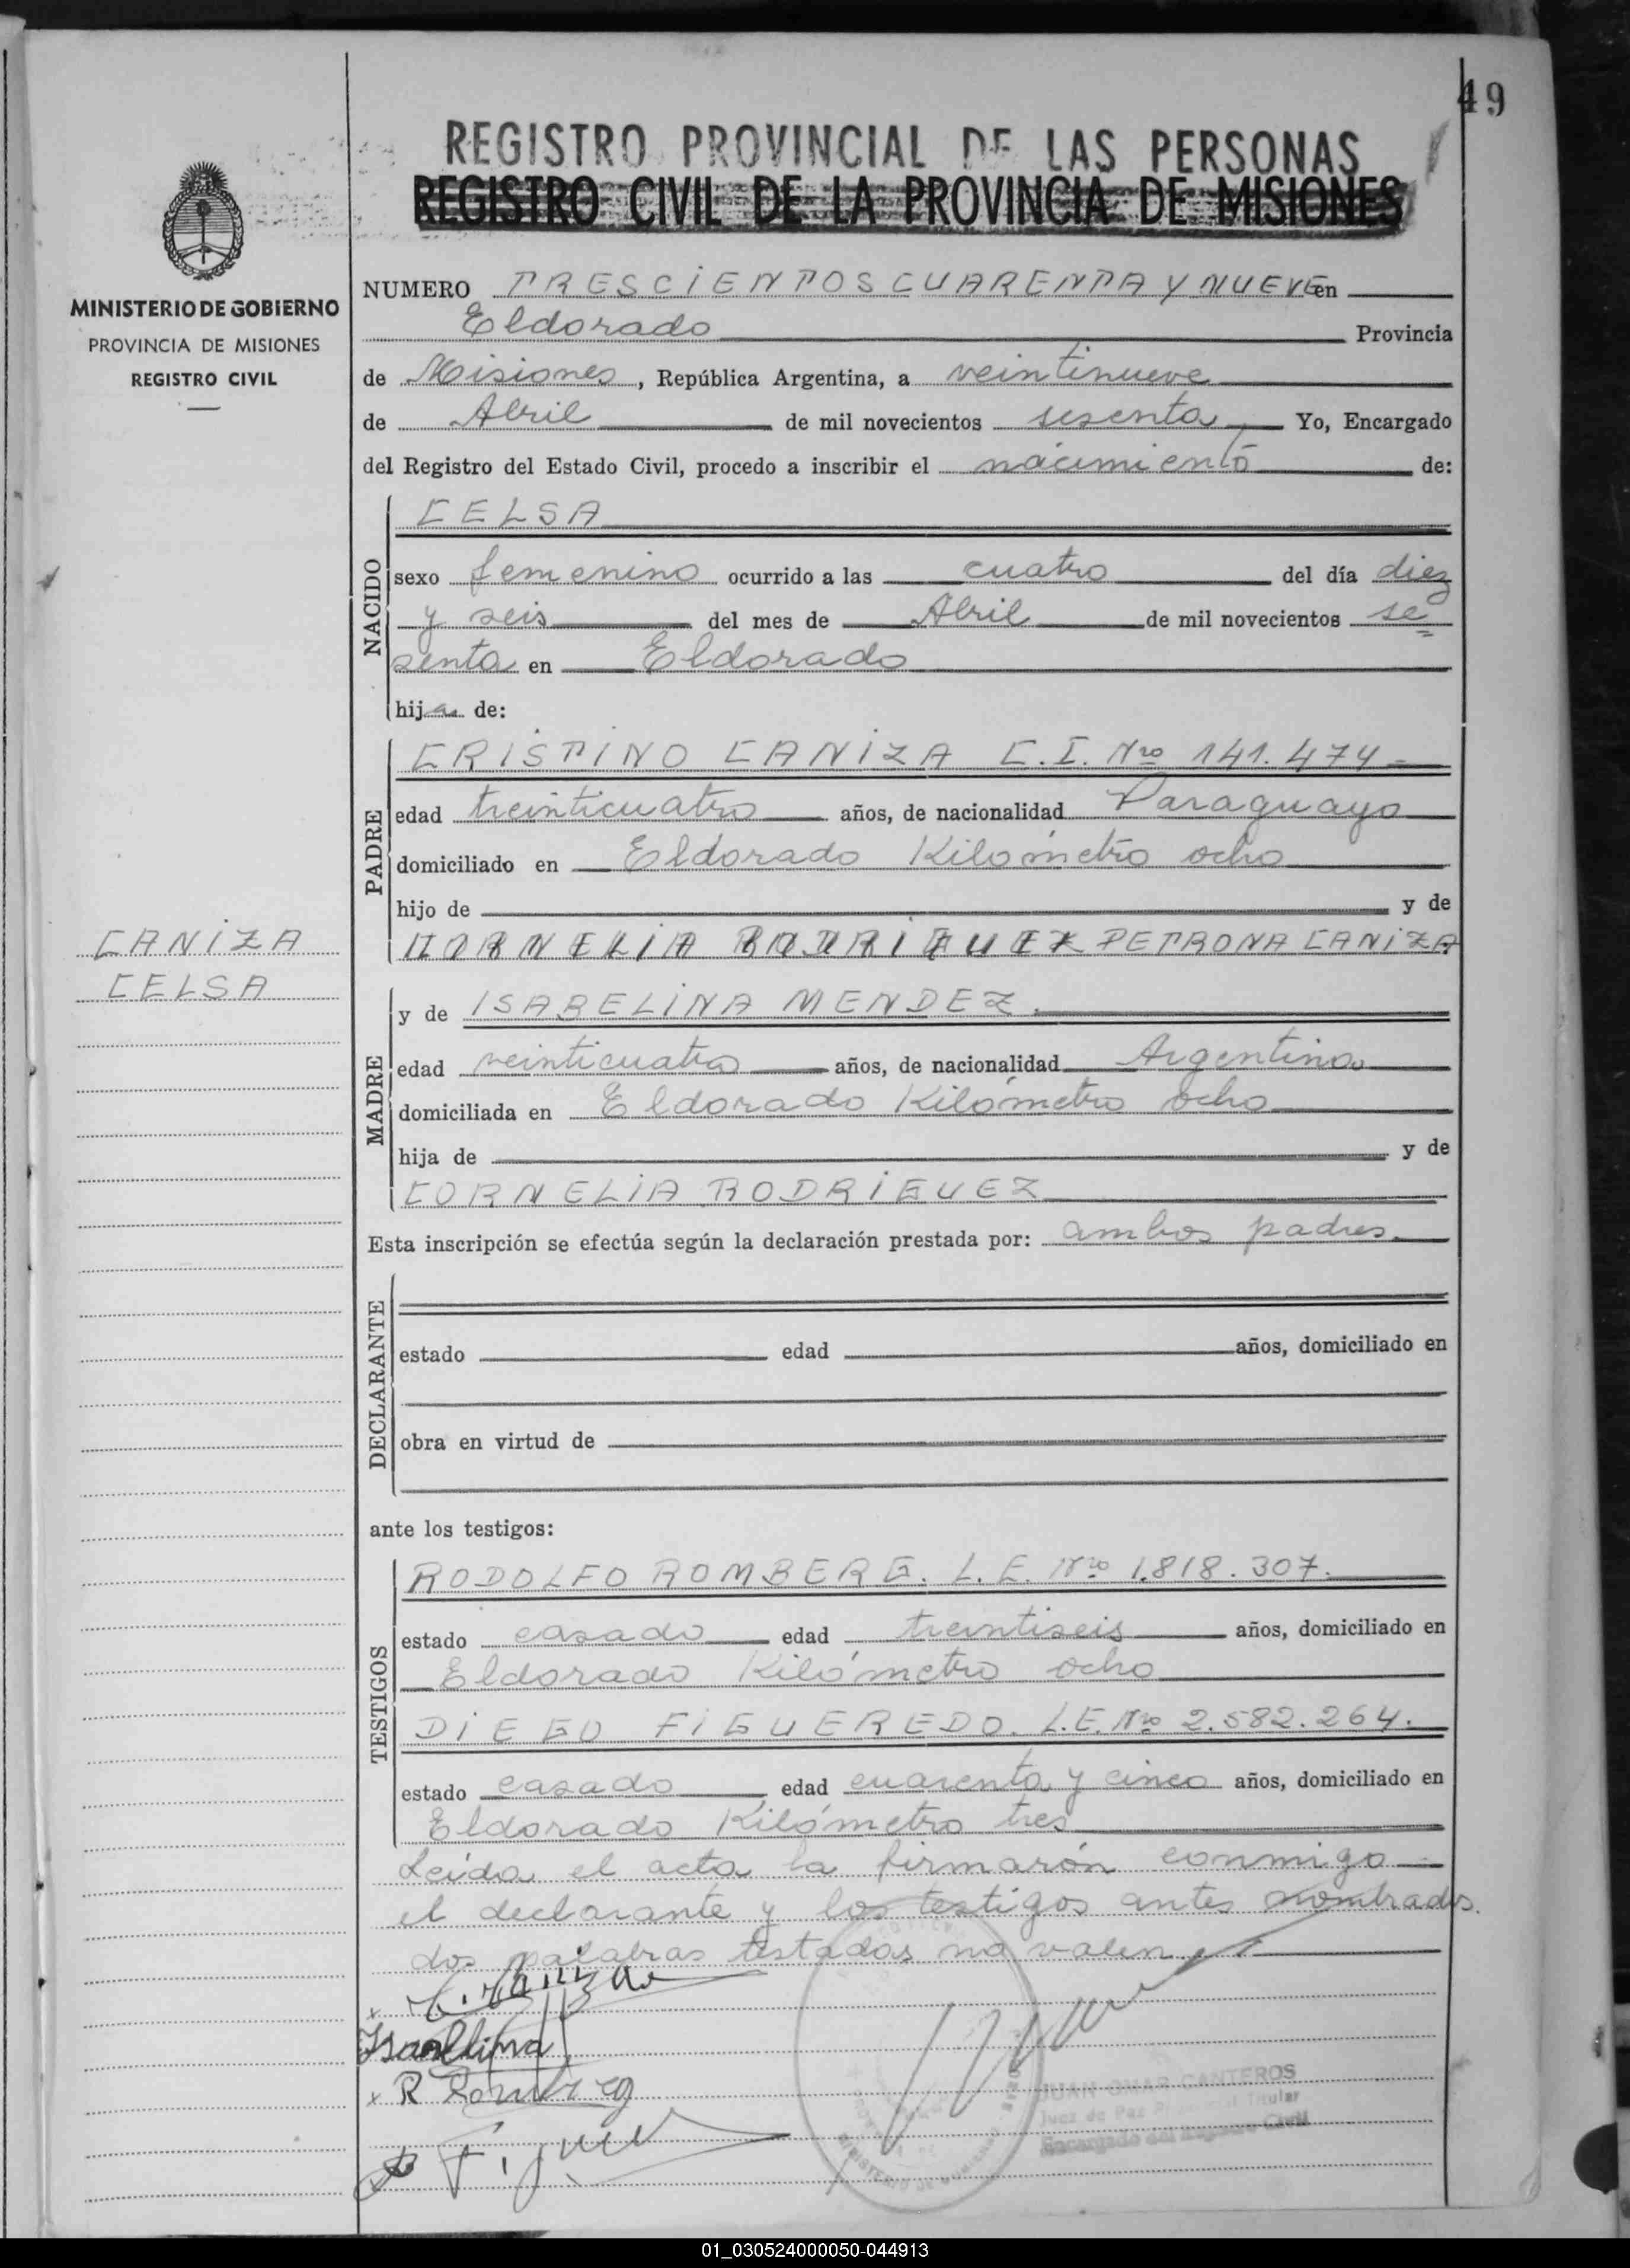 49
REGISTRO PROVINCIAL DE LAS PERSONAS
REGISTRO CIVIL DE LA PROVINCIA DE MISIONES
MINISTERIO DE GOBIERNO
PROVINCIA DE MISIONES
REGISTRO CIVIL
NUMERO TRESCIENTOS CUARENTA Y NUEVE en
Eldorado Provincia
de Misiones, República Argentina, a veintinueve
de Abril de mil novecientos sesenta Yo, Encargado
del Registro del Estado Civil, procedo a inscribir el nacimiento de:
NACIDO
CELSA
sexo femenino ocurrido a las cuatro del día diez
y seis del mes de Abril de mil novecientos se=
senta en Eldorado
hija de:
PADRE
CRISTINO CANIZA C.I. Nro 141.474-
edad treinticuatro años, de nacionalidad Paraguayo
domiciliado en Eldorado Kilómetro ocho
hijo de y de
CORNELIA RODRIGUEZ PETRONA CANIZA
CANIZA
CELSA
MADRE
y de ISABELINA MENDEZ.
edad veinticuatro años, de nacionalidad Argentina
domiciliada en Eldorado Kilómetro ocho
hija de y de
CORNELIA RODRIGUEZ
Esta inscripción se efectúa según la declaración prestada por: ambos padres.
DECLARANTE
estado edad años, domiciliado en
obra en virtud de
ante los testigos:
TESTIGOS
RODOLFO ROMBERG. L.E. Nro 1.818.307.
estado casado edad treintiseis años, domiciliado en
Eldorado Kilómetro ocho
DIEGO FIGUEREDO. L.E. Nro 2.582.264.
estado casado edad cuarenta y cinco años, domiciliado en
Eldorado Kilómetro tres
Leída el acta la firmarón conmigo
el declarante y los testigos antes nombrados.
dos palabras testadas no valen
Isabelina
JUAN OMAR CANTEROS
Juez de Paz Titular
Encargado del Registro Civil
MINISTERIO DE GOBIERNO
01_030524000050-044913